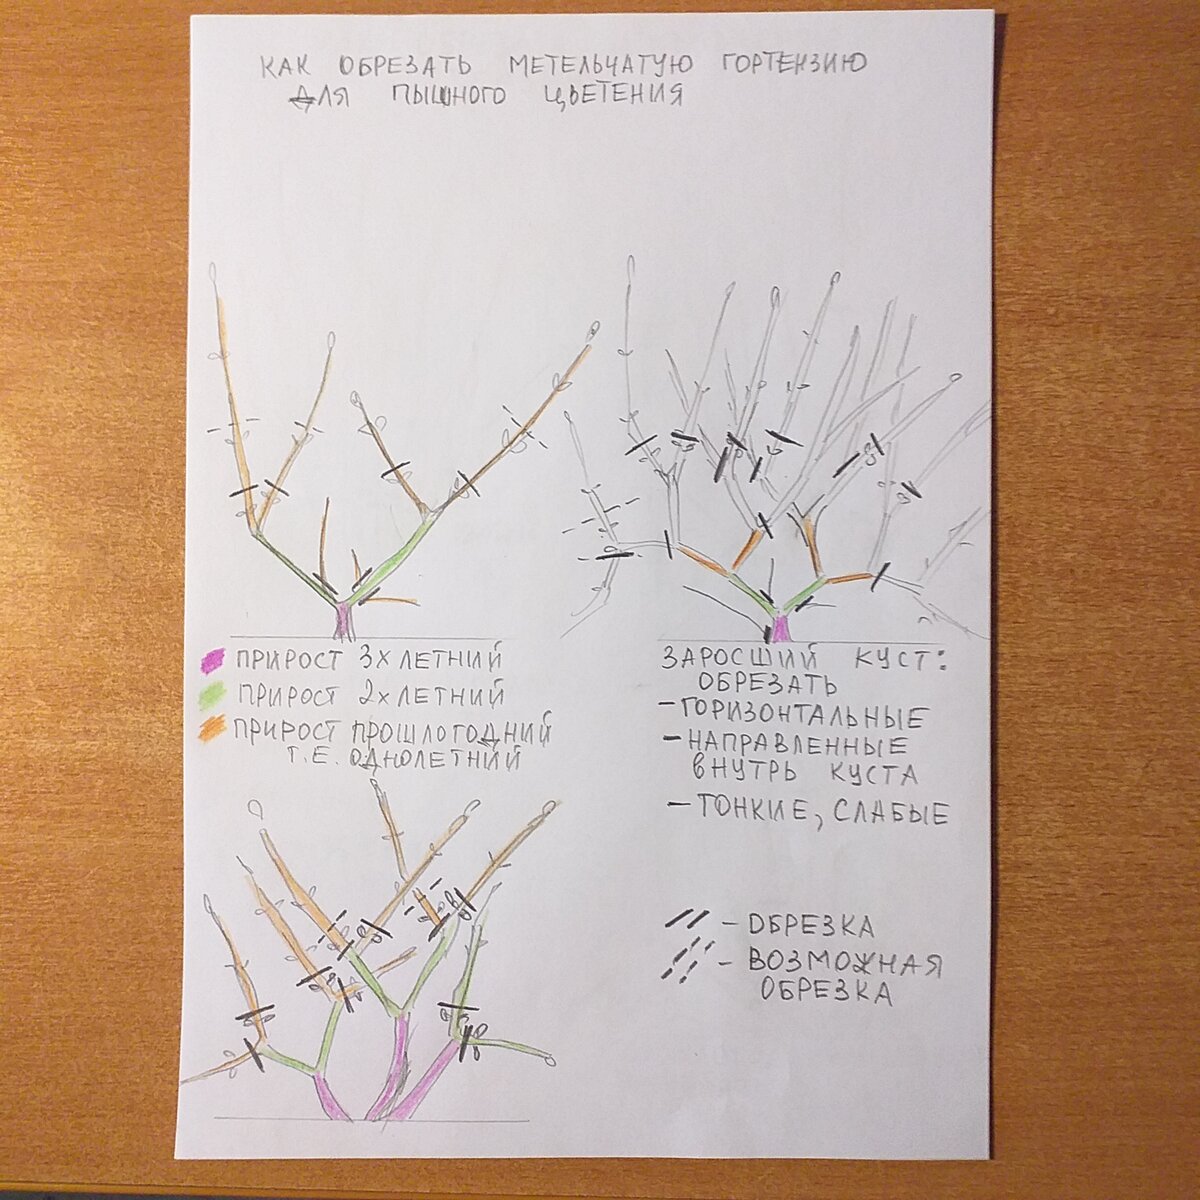 КАК ОБРЕЗАТЬ МЕТЕЛЬЧАТУЮ ГОРТЕНЗИЮ
ДЛЯ ПЫШНОГО ЦВЕТЕНИЯ
ПРИРОСТ 3Х ЛЕТНИЙ
ПРИРОСТ 2х ЛЕТНИЙ
ПРИРОСТ ПРОШЛОГОДНИЙ
Т.Е. ОДНОЛЕТНИЙ
ЗАРОСШИЙ КУСТ:
ОБРЕЗАТЬ
- ГОРИЗОНТАЛЬНЫЕ
- НАПРАВЛЕННЫЕ
ВНУТРЬ КУСТА
- ТОНКИЕ, СЛАБЫЕ
- ОБРЕЗКА
- ВОЗМОЖНАЯ
ОБРЕЗКА